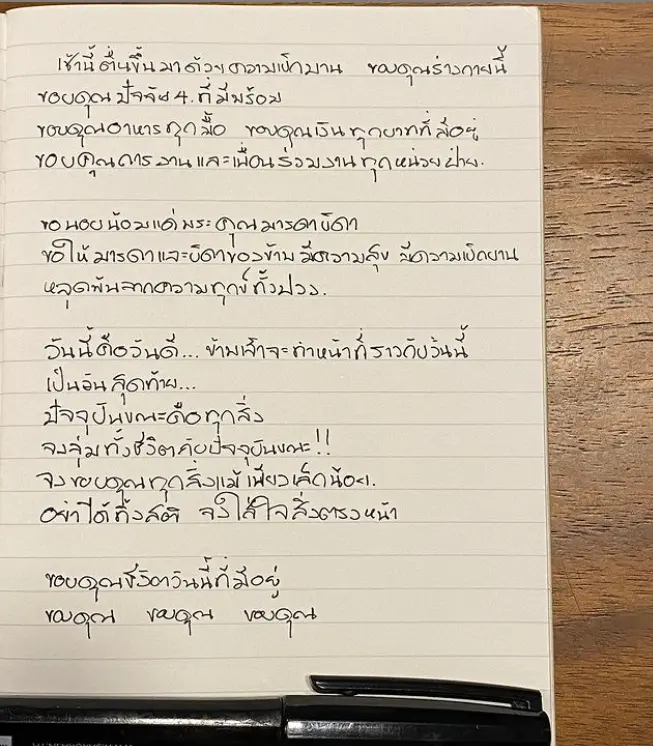 เช้านี้ตื่นขึ้นมาด้วยความเบิกบาน ขอบคุณร่างกายนี้
ขอบคุณปัจจัย 4. ที่มีพร้อม
ขอบคุณอาหารทุกมื้อ ขอบคุณเงินทุกบาทที่มีอยู่
ขอบคุณการงานและเพื่อนร่วมงานทุกหน่วยฝ่าย.
ขอนอบน้อมแด่พระคุณมารดาบิดา
ขอให้มารดาและบิดาของข้าฯ มีความสุข มีความเบิกบาน
หลุดพ้นจากความทุกข์ทั้งปวง.
วันนี้คือวันดี... ข้าพเจ้าจะทำหน้าที่ราวกับวันนี้
เป็นวันสุดท้าย...
ปัจจุบันขณะคือทุกสิ่ง
จงทุ่มทั้งชีวิตกับปัจจุบันขณะ!!
จงขอบคุณทุกสิ่งแม้เพียงเล็กน้อย.
อย่าได้ทิ้งสติ จงใส่ใจสิ่งตรงหน้า
ขอบคุณชีวิตวันนี้ที่มีอยู่
ขอบคุณ ขอบคุณ ขอบคุณ